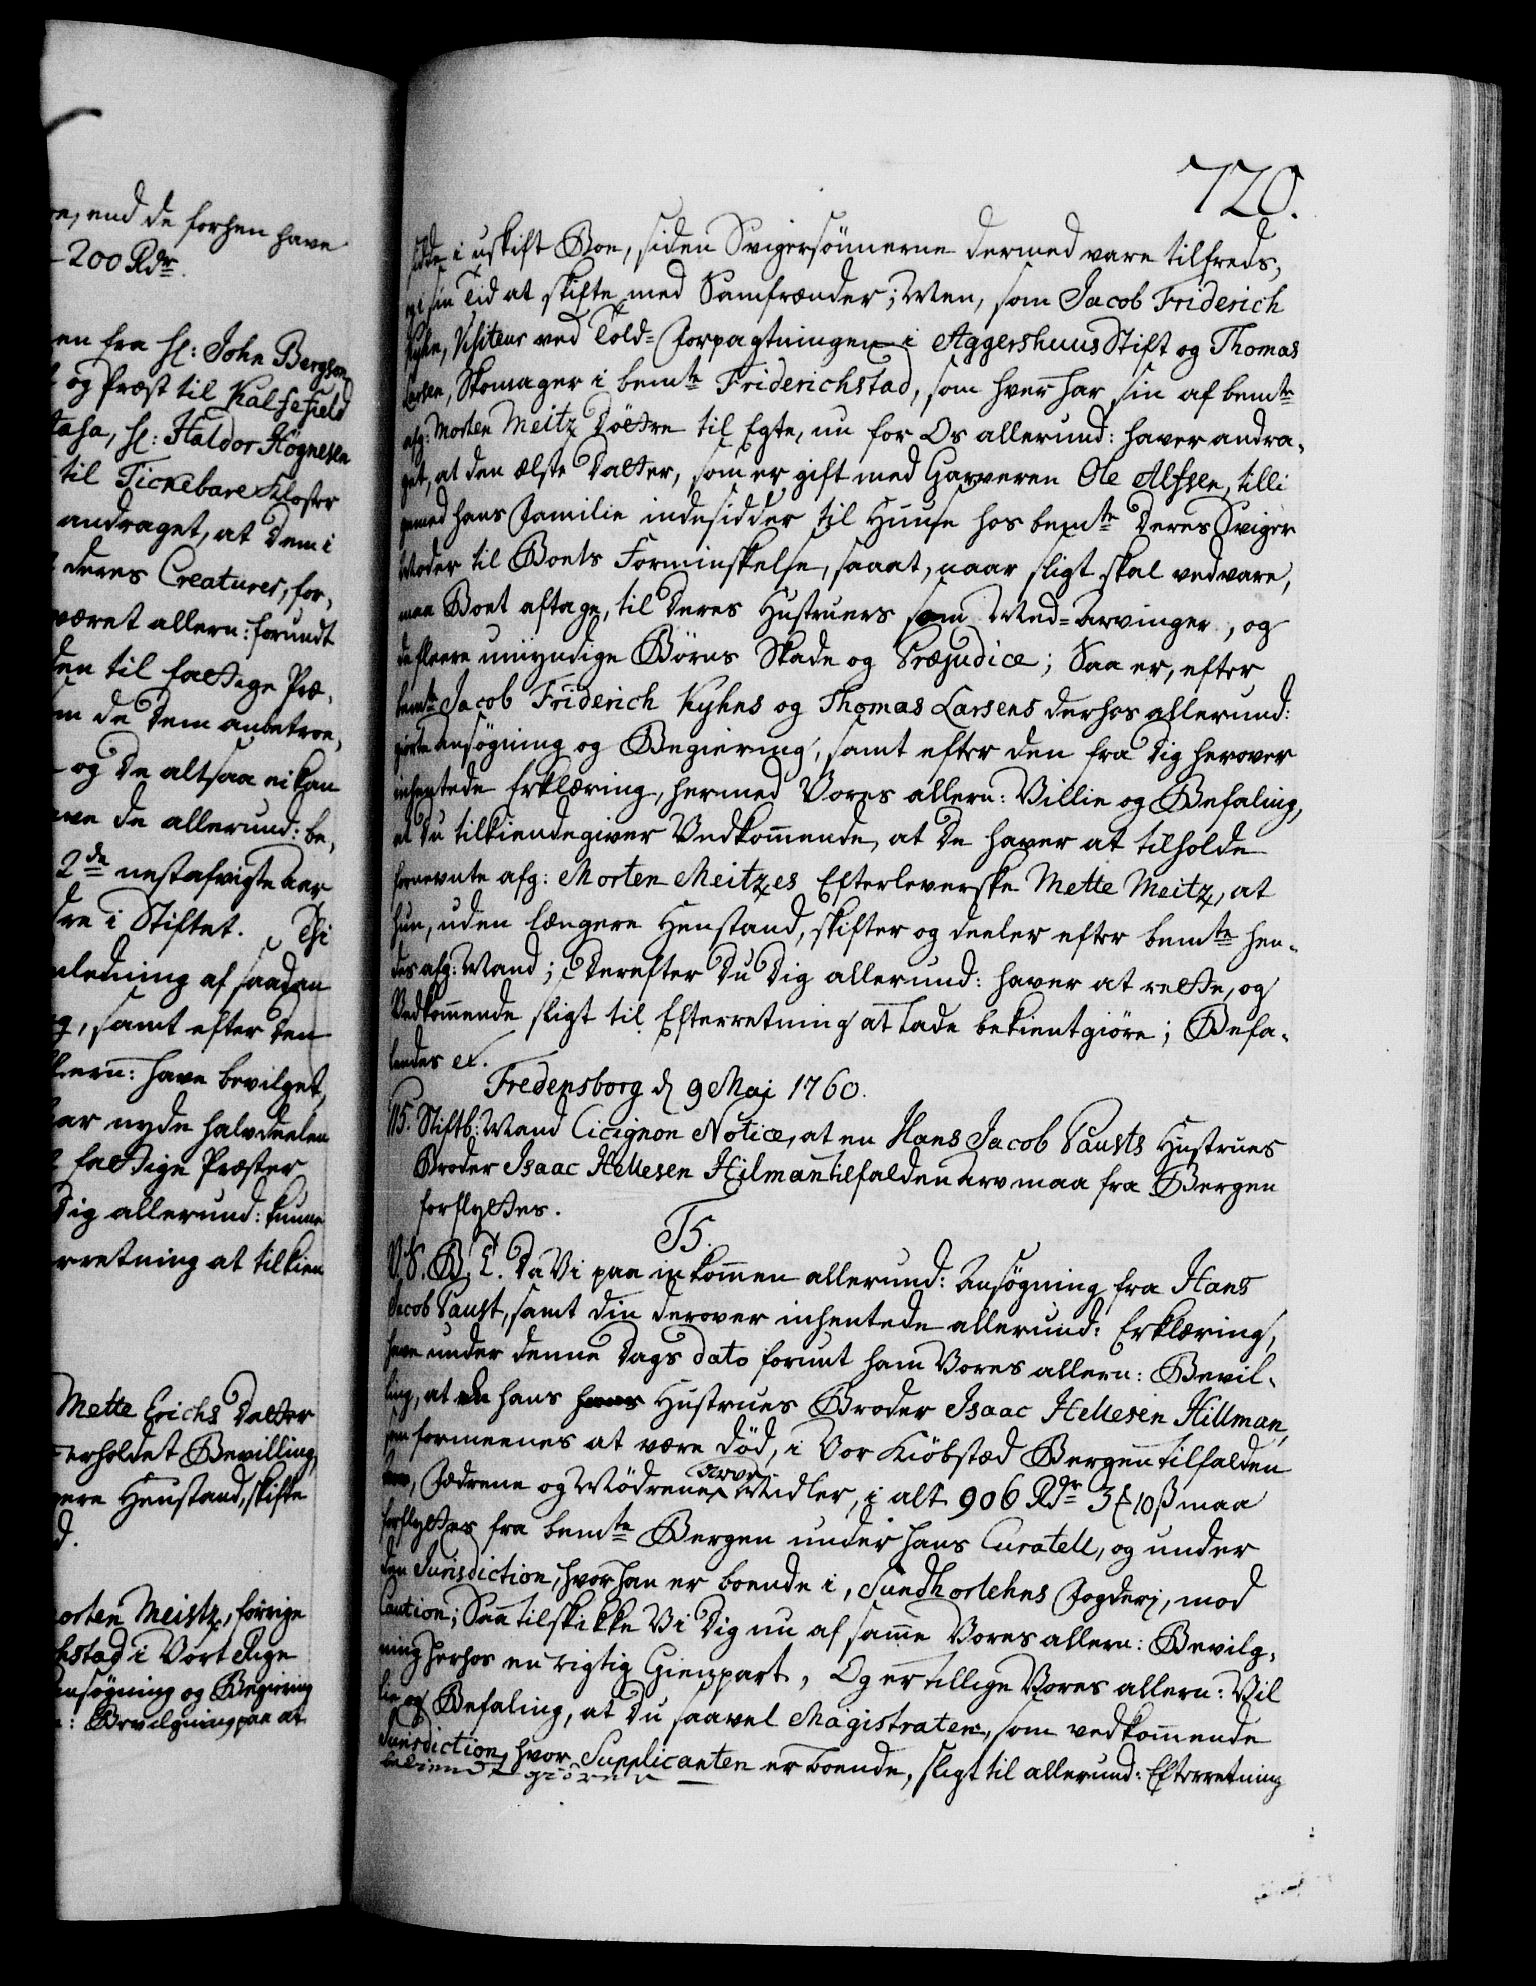 re, end de forhen have
200 Rdr.
en fra Hr: John Bergson
og Præst til Kalfefield
Hr: Haldor Høgnesen
til Tickebare Kloster
andraget, at Dem i
deres Creaturer, for,
været allern: forundt
den til fattige Præ,
de Dem anbetroe,
og De altsaa ei kan
de allerund: be,
2de nestafvigte Aar
i Stiftet. Thi
ledning af saadan
samt efter den
allern: have bevilget,
nyde halvdeelen
fattige Præster
Dig allerund: kunne
rretning at tilkien
Mette Erichs Datter
erholdet Bevilling,
gere Henstand, skifte
d.
orten Meistz, forrige
kstad i Vort Rige
Ansøgning og Begiering
Bevilgning paa at
720.
sidde i uskift Boe, siden Svigersønnerne dermed vare tilfreds,
sin Tid at skifte med Samfrænder; Men, som Jacob Friderich
Kyhn, Visiteur ved Told-Forpagtningen i Aggershuus Stift og Thomas
Larsen, Skomager i bemte Friderichstad, som hver har sin af bemte
afg: Morten Meitz Døttre til Egte, nu for Os allerund: haver andra,
get, at den ælste Datter, som er gift med Garveren Ole Alfsen, tilli
gemed hans Familie indesidder til Huuse hos bemte Deres Sviger
Moder til Boets Forminskelse, saaat, naar sligt skal vedvare,
maa Boet aftage, til Deres Hustruers som Med-Arvinger, og
de fleere umyndige Børns Skade og Præjudice; Saa er, efter
bemte Jacob Friderich Kyhns og Thomas Larsens derhos allerund:
giorte Ansøgning og Begiering, samt efter den fra Dig herover
inhentede Erklæring, hermed Vores allern: Villie og Befaling,
at Du tilkiendegiver Vedkom̄ende, at De haver at tilholde
fornevnte afg: Morten Meitzes Efterleverske Mette Meitz, at
hun, uden længere Henstand, skifter og deeler efter bemte hen,
des afg: Mand; Derefter Du Dig allerund: haver at rette, og
Vedkom̄ende sligt til Efterretning at lade bekientgiøre; Befa,
lendes et.
Fredensborg d 9 Maj 1760.
115. Stiftb: Mand Cicignon Notice, at en Hans Jacob Pausts Hustrues
Broder Isaac Hellesen Hilman tilfalden Arv maa fra Bergen
forflyttes.
F5.
V. S. G. T. Da Vi paa inkom̄en allerund: Ansøgning fra Hans
Jacob Paust, samt din derover inhentede allerund: Erklæring,
have under denne Dags dato forunt ham Vores allern: Bevil,
ling, at de hans hans Hustrues Broder Isaac Hellesen Hillman,
som formeenes at være død, i Vor Kiøbstæd Bergen tilfalden
Arv, Fædrene og Mødrene Arve Midler, i alt 906 Rdr 3 10 ß maa
forflyttes fra bemte Bergen under hans Curatell, og under
den Jurisdiction, hvor han er boende i, Sundhorlehns Fogderj, mod
Caution; Saa tilskikke Vi Dig nu af sam̄e Vores allern: Bevilg,
ning herhos en rigtig Gienpart, Og er tillige Vores allern: Vil
lie og Befaling, at Du saavel Magistraten, som vedkom̄ende
Jurisdiction, hvor Supplicanten er boende, sligt til allerund: Efterretning
bekiendtgiører